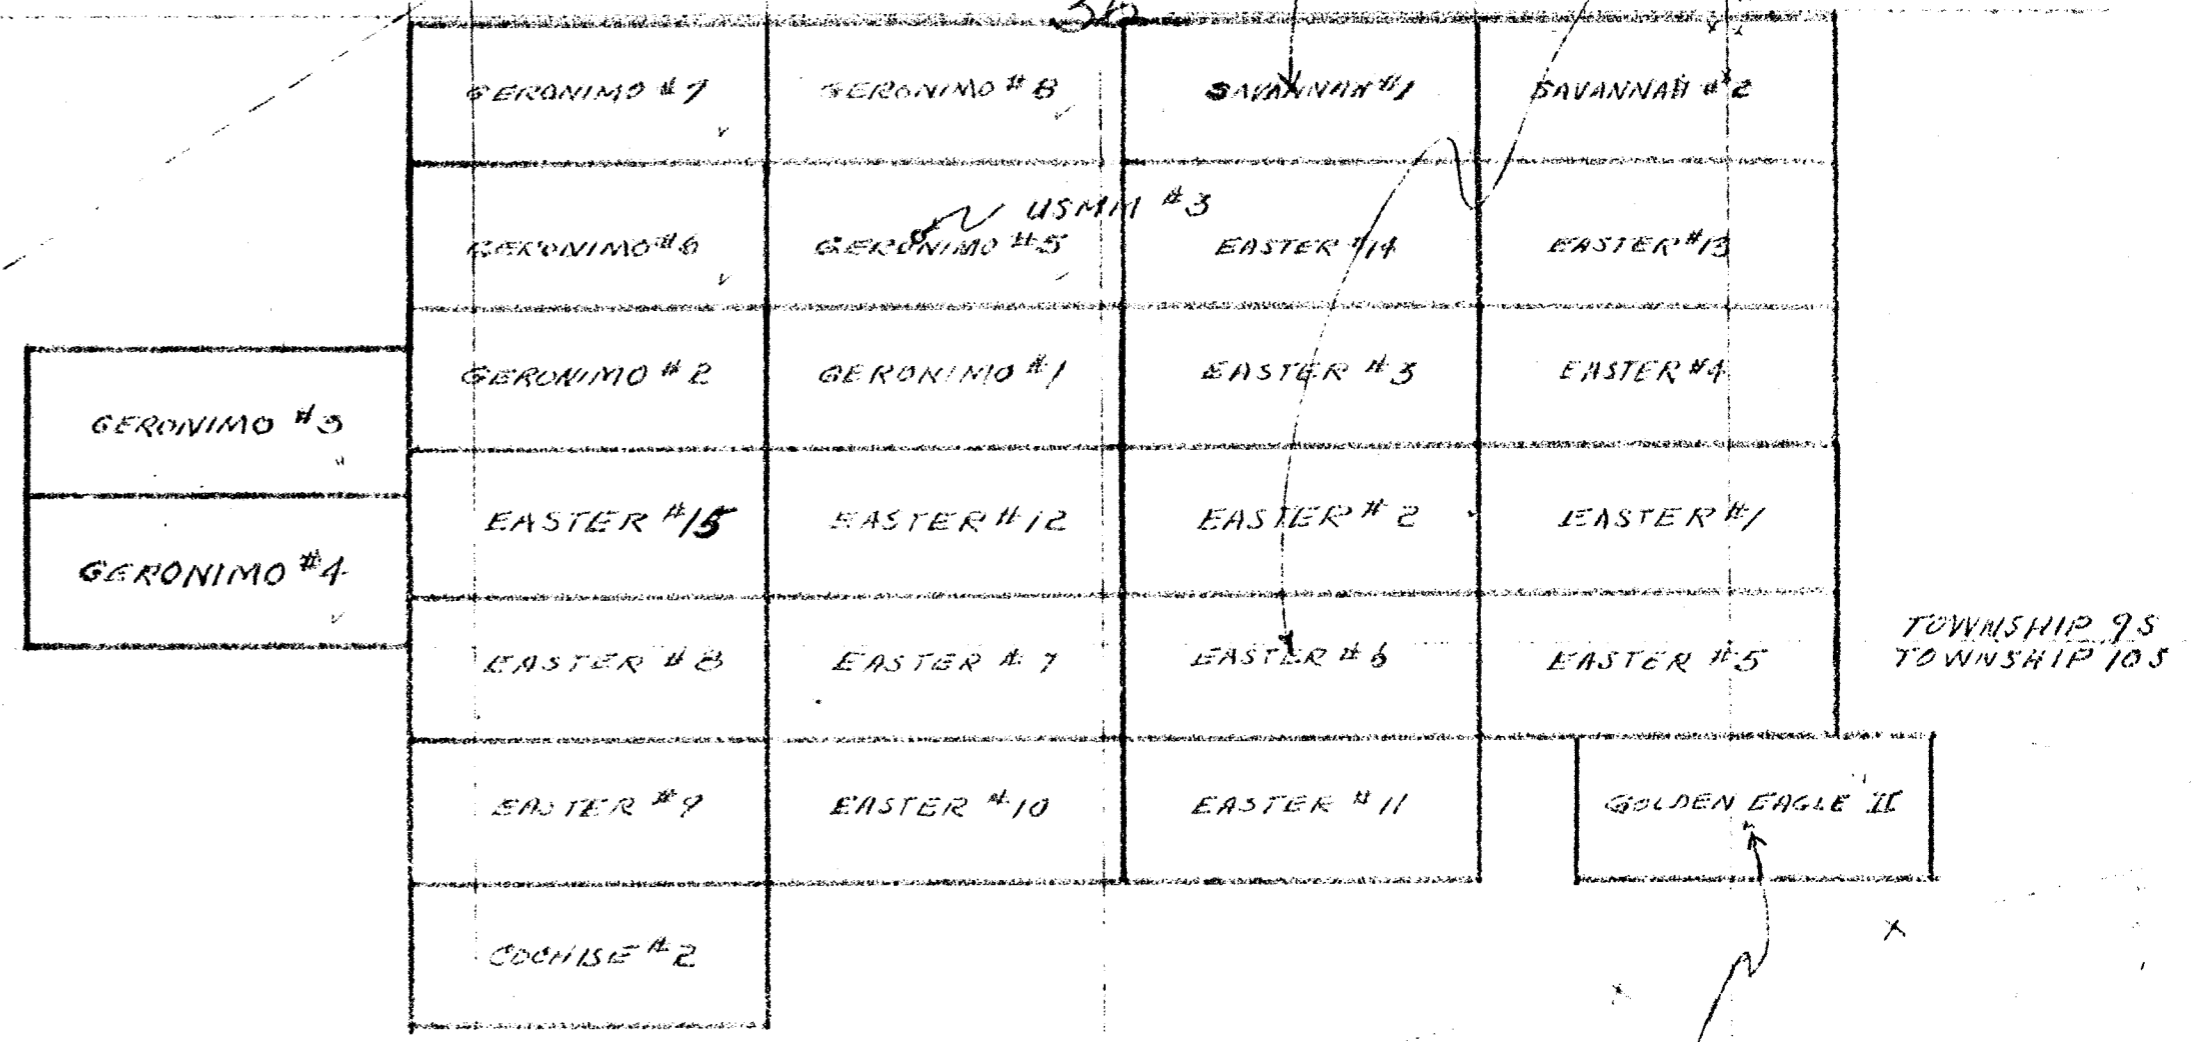 36
GERONIMO #7
GERONIMO #8
SAVANNAH #1
SAVANNAH #2
USMM #3
GERONIMO #6
GERONIMO #5
EASTER #14
EASTER #13
GERONIMO #2
GERONIMO #1
EASTER #3
EASTER #4
GERONIMO #3
EASTER #15
EASTER #12
EASTER #2
EASTER #1
GERONIMO #4
EASTER #8
EASTER #7
EASTER #6
EASTER #5
TOWNSHIP 9S
TOWNSHIP 10S
EASTER #9
EASTER #10
EASTER #11
GOLDEN EAGLE II
COCHISE #2